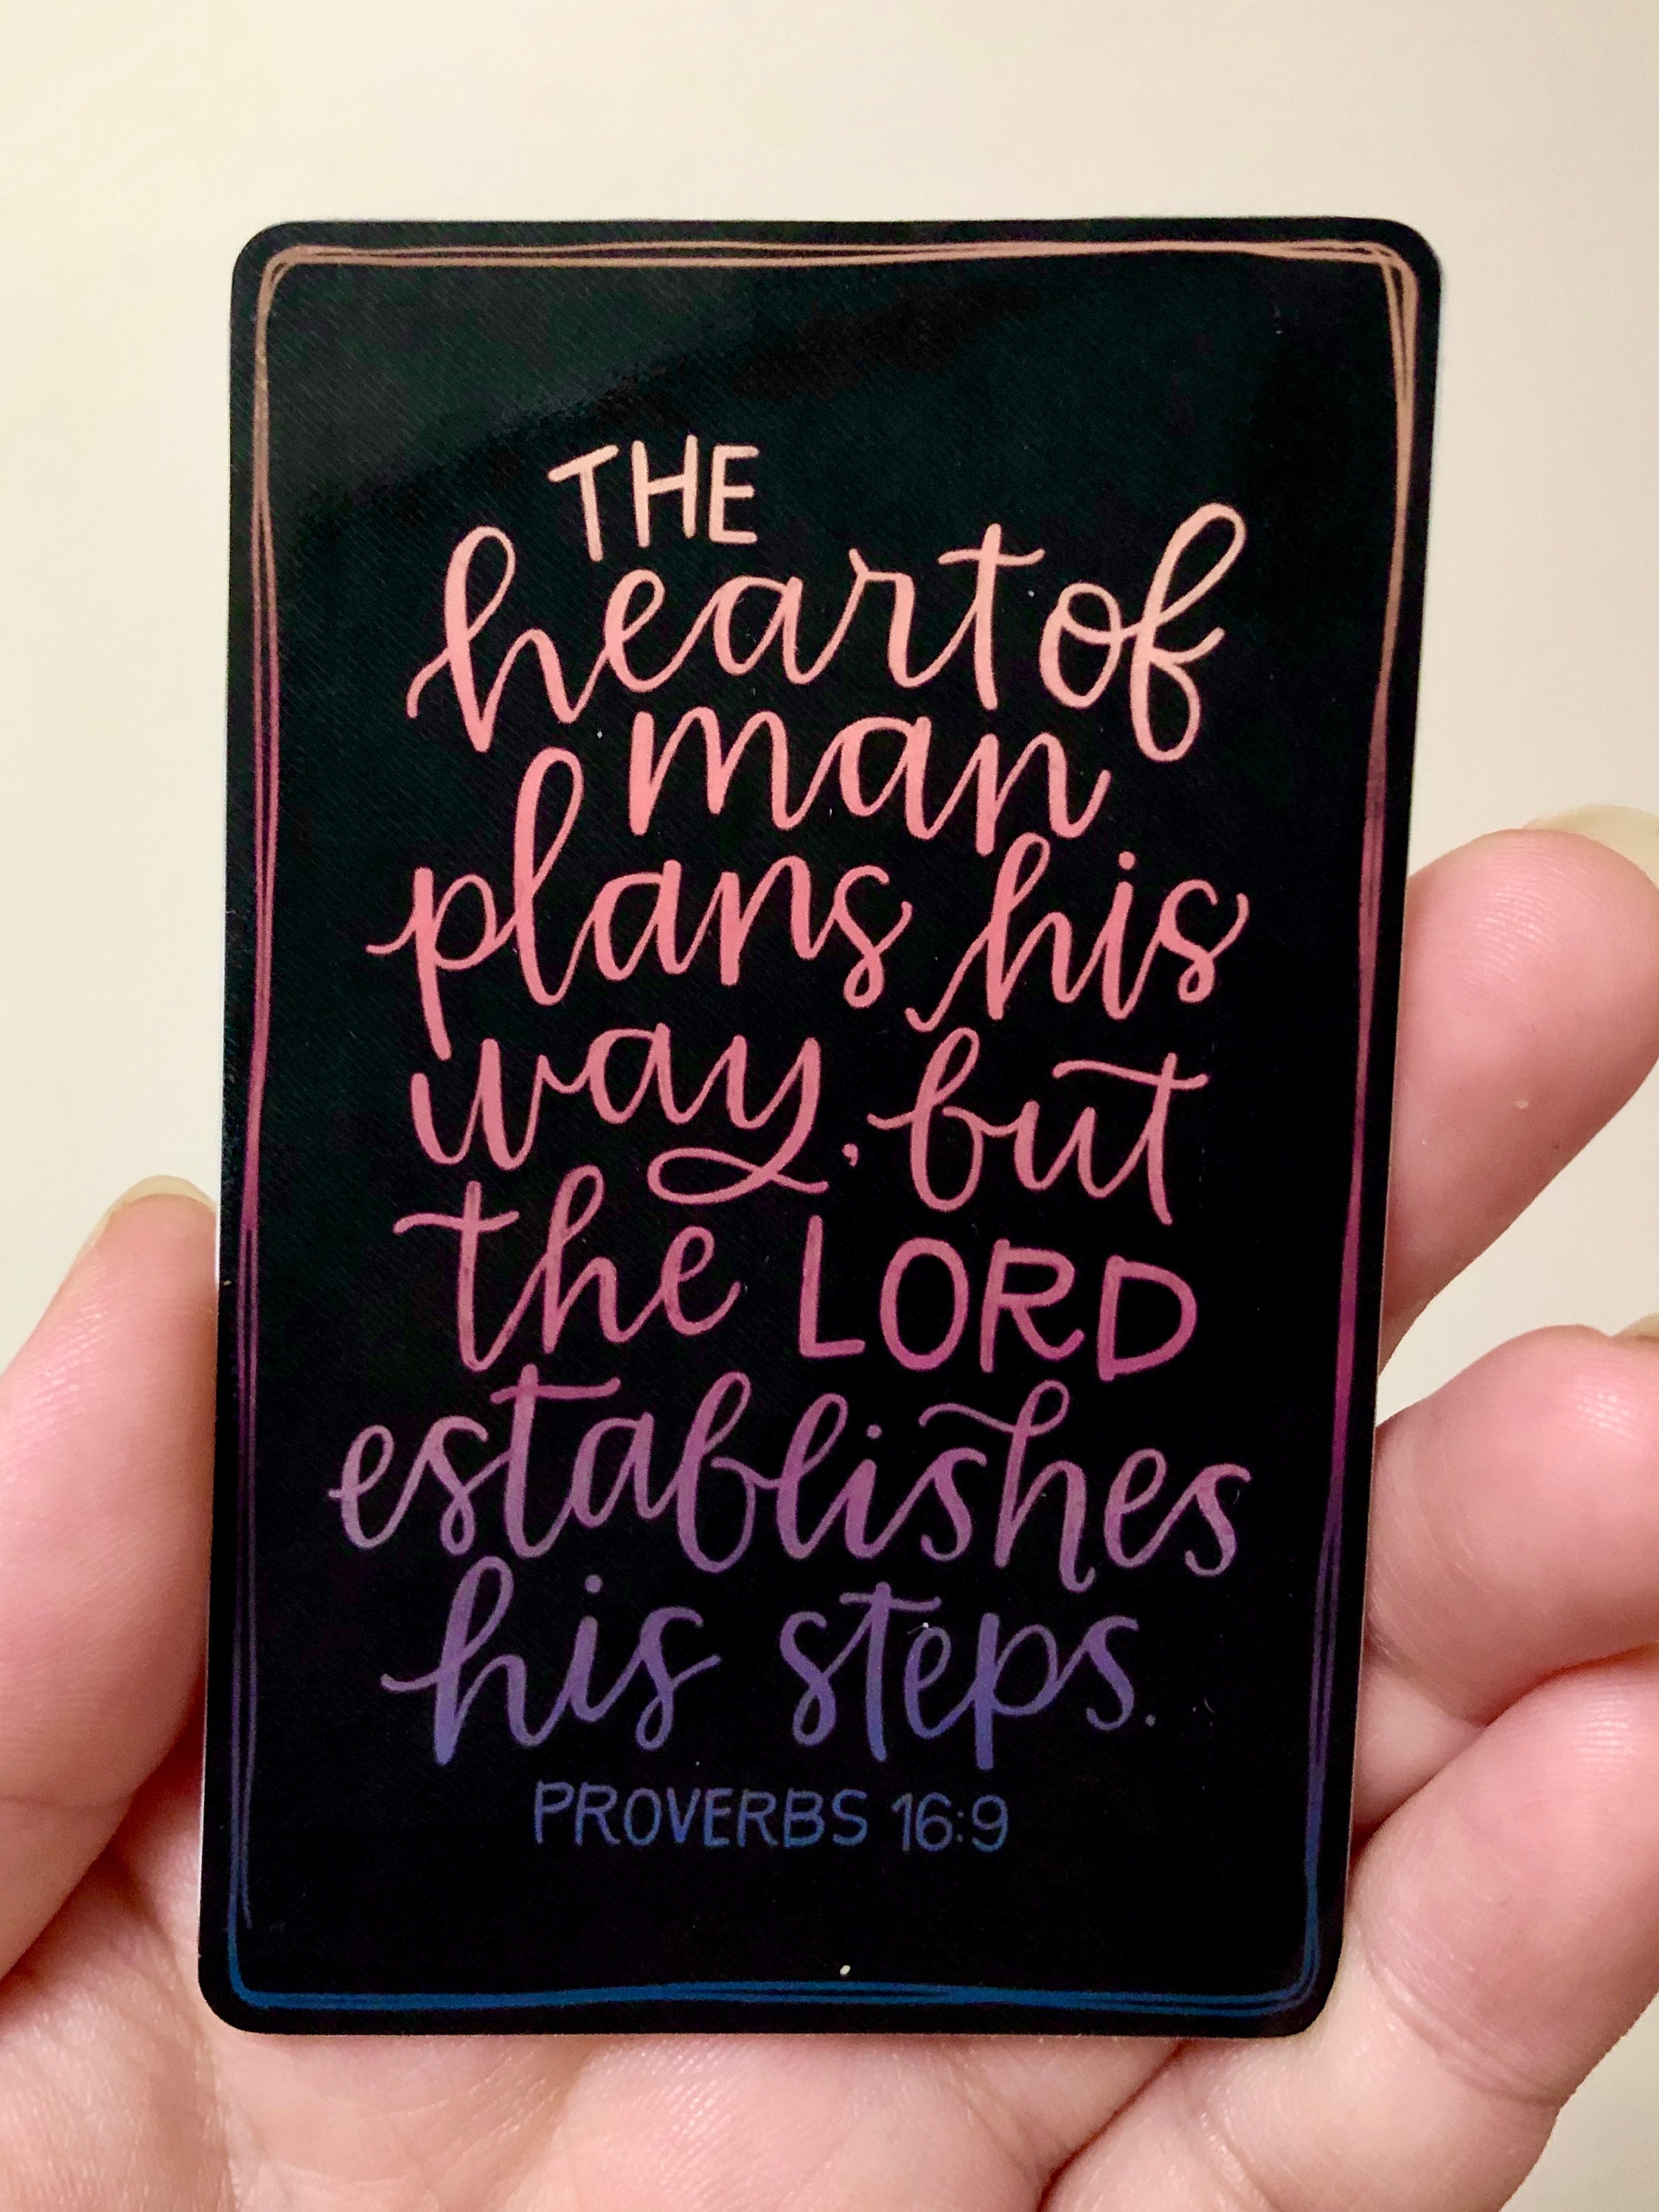 THE
heart of
man
plans his
way, but
the LORD
establishes
his steps.
PROVERBS 16:9